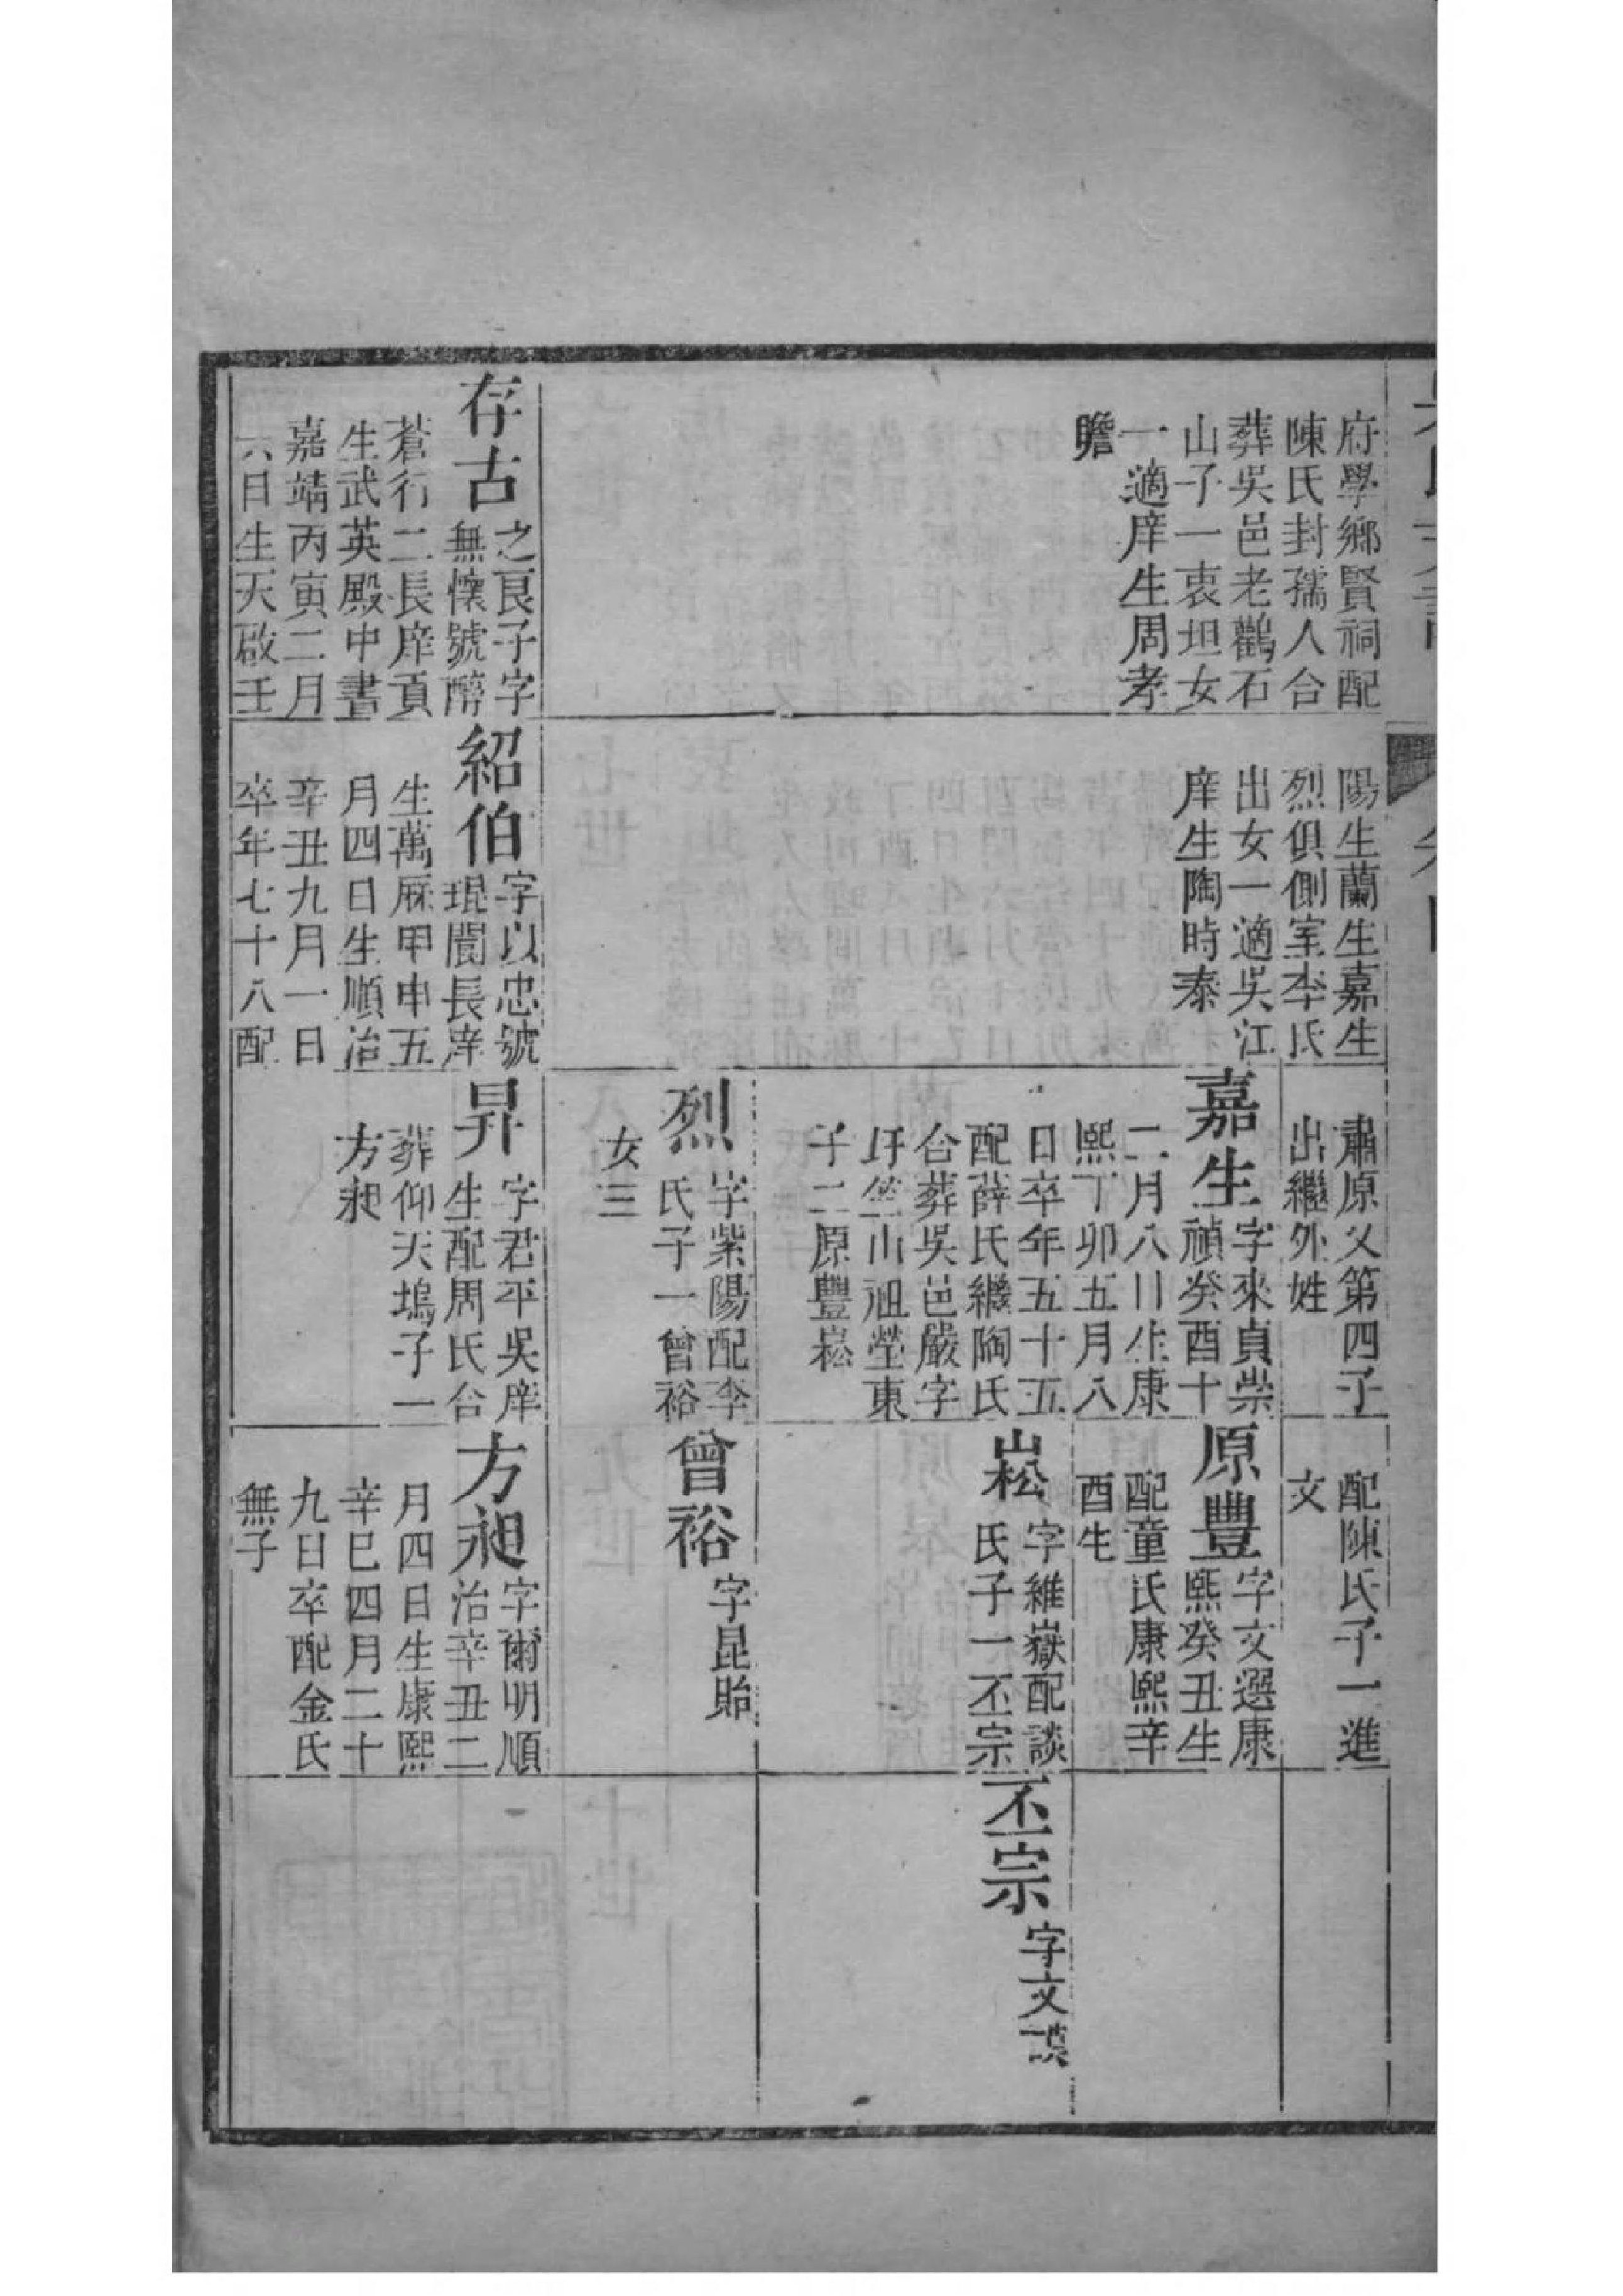 府學鄉賢祠配
陳氏封孺人合
葬吳邑老鸛石
山子一衷坦女
一適庠生周孝
瞻
存古之艮子字
無懷號醉
蒼行二長庠貢
生武英殿中書
嘉靖丙寅二月
六日生天啟壬
陽生蘭生嘉生
烈俱側室李氏
出女一適吳江
庠生陶時泰
紹伯字以忠號
琨閬長庠
生萬厤甲申五
月四日生順治
辛丑九月一日
卒年七十八配
肅原父第四子
出繼外姓
嘉生字來貞崇
禎癸酉十
二月八日生康
熙丁卯五月八
日卒年五十五
配薛氏繼陶氏
合葬吳邑嚴字
圩竺山祖塋東
子二原豐崧
烈字紫陽配李
氏子一曾裕
女三
昇字君平吳庠
生配周氏合
葬仰天塢子一
方昶
配陳氏子一進
文
原豐字文選康
熙癸丑生
配童氏康熙辛
酉生
崧字維嶽配談
氏子一丕宗
曾裕字昆貽
方昶字爾明順
治辛丑二
月四日生康熙
辛巳四月二十
九日卒配金氏
無子
丕宗字文謨